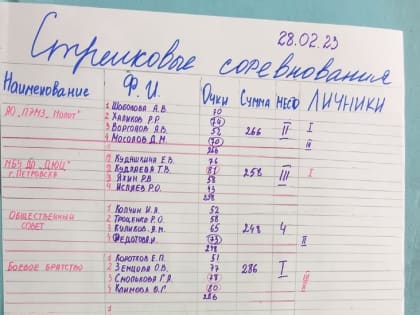 28.02.23
Стрелковые соревнования
Наименование Ф.И. Очки Сумма Место Личники
АО "ПЭМЗ, Молот" 1 Шоболова А.В. 70
2 Халиков Р.Р. 74 I
3 Ворсолов Я.В. 52 266 II
4 Мосолов Д.М. 70 III
266
МБУ ДО "ДЮЦ" 1 Кудашкина Е.В. 76
г. Петровска 2 Кудляева Т.В. 81 258 III I
3 Яхин Р.В. 58
4 Исляев Р.О. 43
258
Общественный 1 Колчин И.Я. 52
совет 2 Троценко Р.О. 58
3 Куликов Я.М. 65 248 4
4 Федотов И. 73 II
248
Боевое братство 1 Коротков Е.П. 51
2 Земцова О.В. 77 286 I
3 Смолькова Г.Я. 78 III
4 Климова В.Г. 80 II
286
1